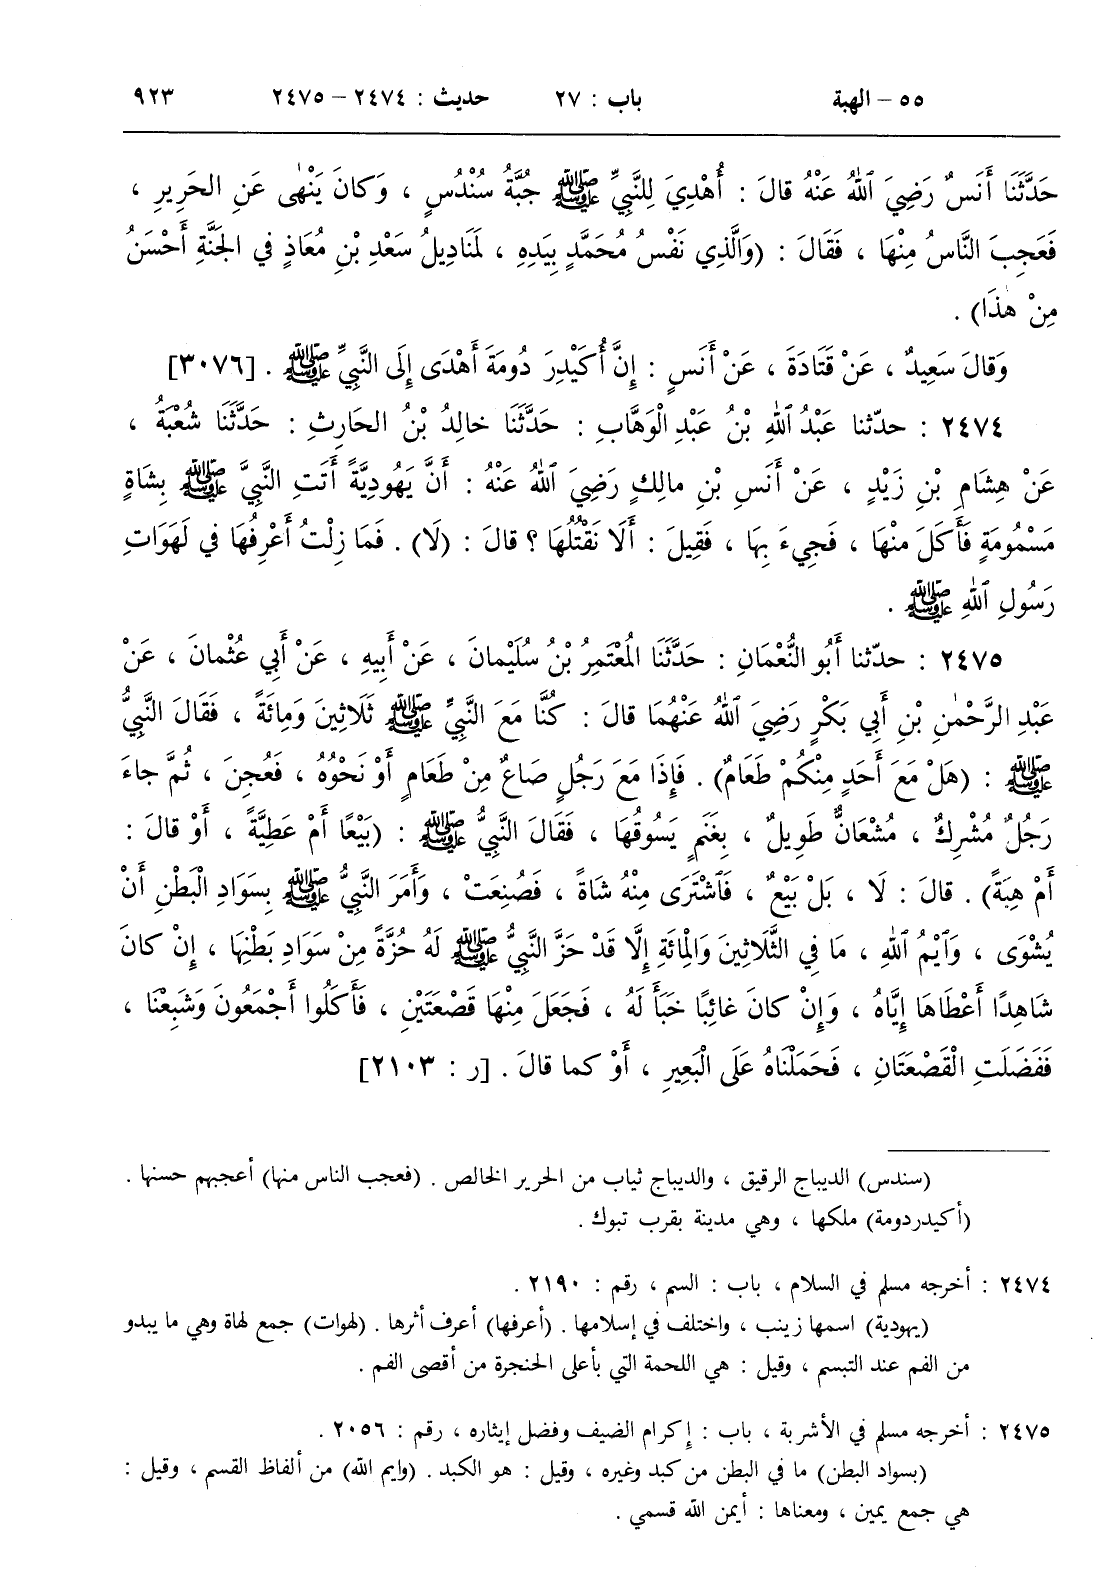 ٥٥ – الهبة باب : ٢٧ حديث : ٢٤٧٤ – ٢٤٧٥ ٩٢٣
حَدَّثَنَا أَنَسٌ رَضِيَ ٱللهُ عَنْهُ قالَ : أُهْدِيَ لِلنَّبِيِّ ﷺ جُبَّةُ سُنْدُسٍ ، وَكانَ يَنْهٰى عَنِ الحَرِيرِ ،
فَعَجِبَ النَّاسُ مِنْهَا ، فَقَالَ : (وَالَّذِي نَفْسُ مُحَمَّدٍ بِيَدِهِ ، لَمَنَادِيلُ سَعْدِ بْنِ مُعَاذٍ في الجَنَّةِ أَحْسَنُ
مِنْ هٰذَا) .
وَقالَ سَعِيدٌ ، عَنْ قَتَادَةَ ، عَنْ أَنَسٍ : إِنَّ أُكَيْدِرَ دُومَةَ أَهْدَى إِلَى النَّبِيِّ ﷺ . [٣٠٧٦]
٢٤٧٤ : حدّثنا عَبْدُ ٱللهِ بْنُ عَبْدِ الْوَهَّابِ : حَدَّثَنَا خالِدُ بْنُ الحَارِثِ : حَدَّثَنَا شُعْبَةُ ،
عَنْ هِشَامِ بْنِ زَيْدٍ ، عَنْ أَنَسِ بْنِ مالِكٍ رَضِيَ ٱللهُ عَنْهُ : أَنَّ يَهُودِيَّةً أَتَتِ النَّبِيَّ ﷺ بِشَاةٍ
مَسْمُومَةٍ فَأَكَلَ مِنْهَا ، فَجِيءَ بِهَا ، فَقِيلَ : أَلَا نَقْتُلُهَا ؟ قالَ : (لَا) . فَمَا زِلْتُ أَعْرِفُهَا في لَهَوَاتِ
رَسُولِ ٱللهِ ﷺ .
٢٤٧٥ : حدّثنا أَبُو النُّعْمَانِ : حَدَّثَنَا المُعْتَمِرُ بْنُ سُلَيْمانَ ، عَنْ أَبِيهِ ، عَنْ أَبِي عُثْمانَ ، عَنْ
عَبْدِ الرَّحْمٰنِ بْنِ أَبِي بَكْرٍ رَضِيَ ٱللهُ عَنْهُمَا قالَ : كُنَّا مَعَ النَّبِيِّ ﷺ ثَلَاثِينَ وَمِائَةً ، فَقَالَ النَّبِيُّ
ﷺ : (هَلْ مَعَ أَحَدٍ مِنْكُمْ طَعَامٌ) . فَإِذَا مَعَ رَجُلٍ صَاعٌ مِنْ طَعَامٍ أَوْ نَحْوُهُ ، فَعُجِنَ ، ثُمَّ جاءَ
رَجُلٌ مُشْرِكٌ ، مُشْعَانٌّ طَوِيلٌ ، بِغَنَمٍ يَسُوقُهَا ، فَقَالَ النَّبِيُّ ﷺ : (بَيْعًا أَمْ عَطِيَّةً ، أَوْ قالَ :
أَمْ هِبَةً) . قالَ : لَا ، بَلْ بَيْعٌ ، فَٱشْتَرَى مِنْهُ شَاةً ، فَصُنِعَتْ ، وَأَمَرَ النَّبِيُّ ﷺ بِسَوَادِ الْبَطْنِ أَنْ
يُشْوَى ، وَٱيْمُ ٱللهِ ، مَا فِي الثَّلَاثِينَ وَالْمِائَةِ إِلَّا قَدْ حَزَّ النَّبِيُّ ﷺ لَهُ حُزَّةً مِنْ سَوَادِ بَطْنِهَا ، إِنْ كانَ
شَاهِدًا أَعْطَاهَا إِيَّاهُ ، وَإِنْ كانَ غائِبًا خَبَأَ لَهُ ، فَجَعَلَ مِنْهَا قَصْعَتَيْنِ ، فَأَكَلُوا أَجْمَعُونَ وَشَبِعْنَا ،
فَفَضَلَتِ الْقَصْعَتَانِ ، فَحَمَلْنَاهُ عَلَى الْبَعِيرِ ، أَوْ كما قالَ . [ر : ٢١٠٣]
(سندس) الديباج الرقيق ، والديباج ثياب من الحرير الخالص . (فعجب الناس منها) أعجبهم حسنها .
(أكيدردومة) ملكها ، وهي مدينة بقرب تبوك .
٢٤٧٤ : أخرجه مسلم في السلام ، باب : السم ، رقم : ٢١٩٠ .
(يهودية) اسمها زينب ، واختلف في إسلامها . (أعرفها) أعرف أثرها . (لهوات) جمع لهاة وهي ما يبدو
من الفم عند التبسم ، وقيل : هي اللحمة التي بأعلى الحنجرة من أقصى الفم .
٢٤٧٥ : أخرجه مسلم في الأشربة ، باب : إكرام الضيف وفضل إيثاره ، رقم : ٢٠٥٦ .
(بسواد البطن) ما في البطن من كبد وغيره ، وقيل : هو الكبد . (وايم الله) من ألفاظ القسم ، وقيل :
هي جمع يمين ، ومعناها : أيمن الله قسمي .